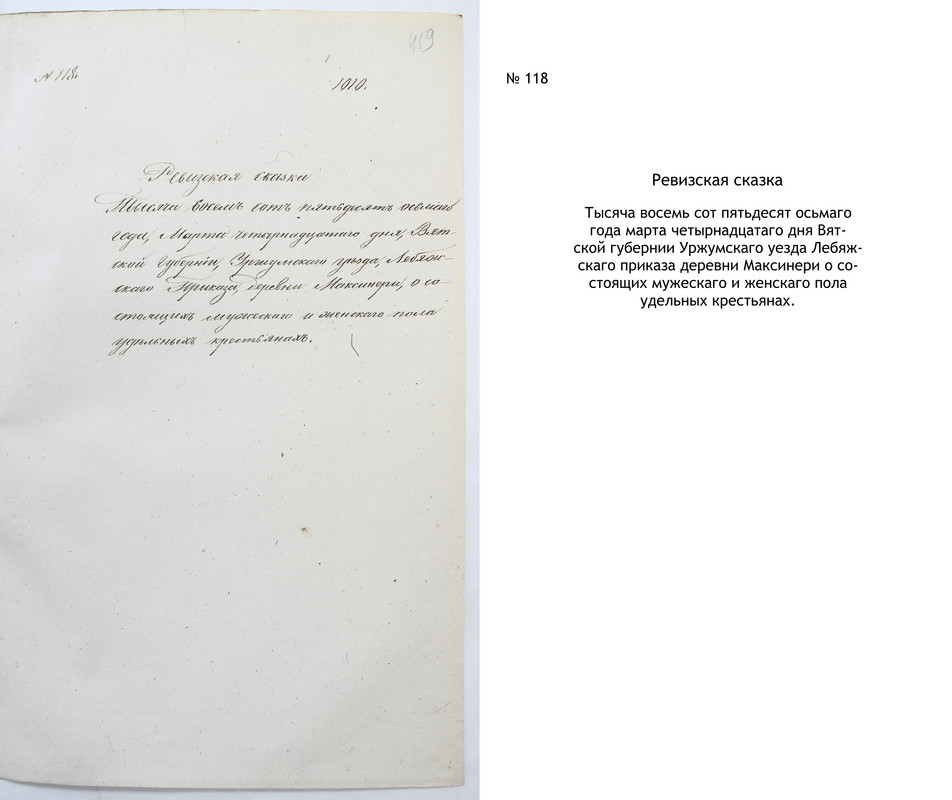 419
№ 118.
1010.
Ревизская сказка
Тысяча восемь сотъ пятьдесятъ осьмаго
года, Марта четырнадцатаго дня, Вят-
ской Губерніи, Уржумскаго уѣзда, Лебяж-
скаго Приказа, деревни Максинери, о со-
стоящихъ мужескаго и женскаго пола
удѣльныхъ крестьянахъ.
№ 118
Ревизская сказка
Тысяча восемь сот пятьдесят осьмаго
года марта четырнадцатаго дня Вят-
ской губернии Уржумскаго уезда Лебяж-
скаго приказа деревни Максинери о со-
стоящих мужескаго и женскаго пола
удельных крестьянах.